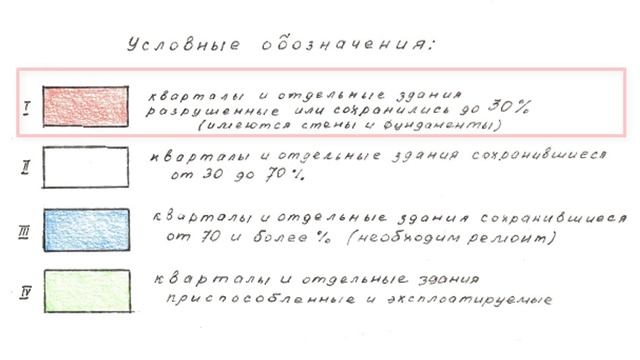 Условные обозначения:
I кварталы и отдельные здания
разрушенные или сохранились до 30%
(имеются стены и фундаменты)
II кварталы и отдельные здания сохранившиеся
от 30 до 70%.
III кварталы и отдельные здания сохранившиеся
от 70 и более % (необходим ремонт)
IV кварталы и отдельные здания
приспособленные и эксплоатируемые